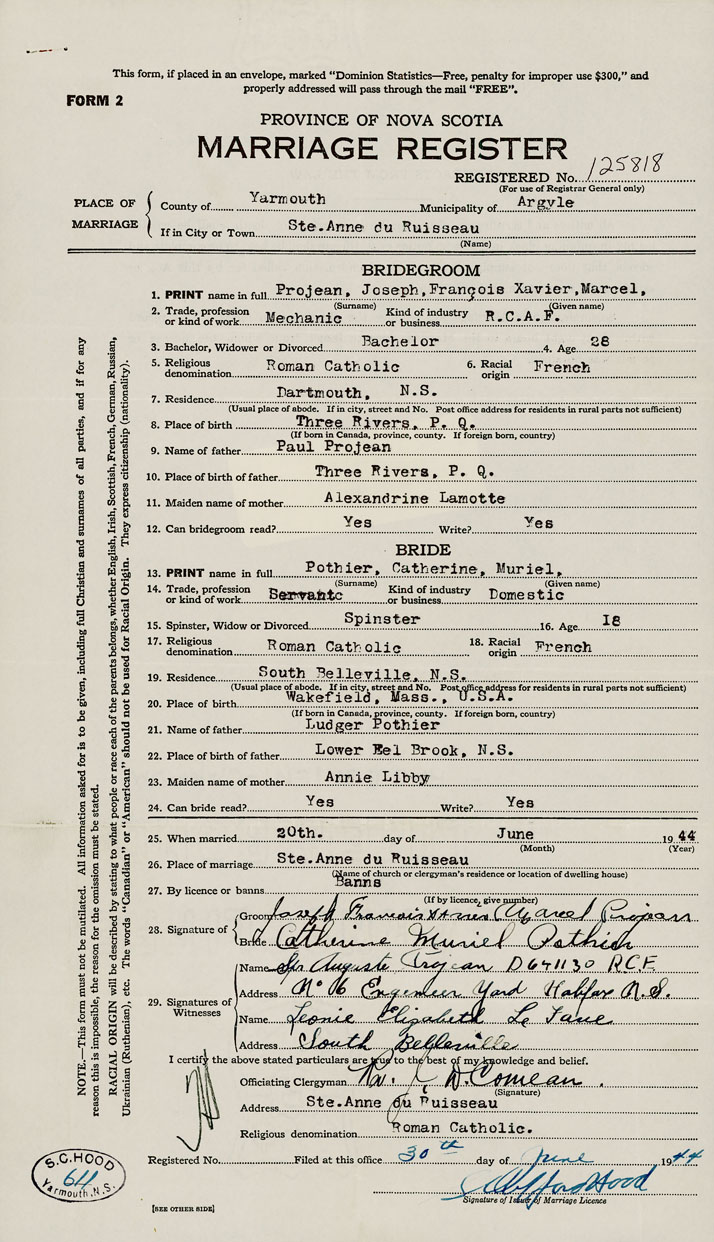 This form, if placed in an envelope, marked "Dominion Statistics—Free, penalty for improper use $300," and
properly addressed will pass through the mail "FREE".
FORM 2
PROVINCE OF NOVA SCOTIA
MARRIAGE REGISTER
REGISTERED No. 125818
(For use of Registrar General only)
PLACE OF MARRIAGE
County of Yarmouth Municipality of Argyle
If in City or Town Ste.Anne du Ruisseau
(Name)
BRIDEGROOM
1. PRINT name in full Projean, Joseph,François Xavier,Marcel,
(Surname) (Given name)
2. Trade, profession or kind of work Mechanic Kind of industry or business R.C.A.F.
3. Bachelor, Widower or Divorced Bachelor 4. Age 28
5. Religious denomination Roman Catholic 6. Racial origin French
7. Residence Dartmouth, N.S.
(Usual place of abode. If in city, street and No. Post office address for residents in rural parts not sufficient)
8. Place of birth Three Rivers, P. Q.
(If born in Canada, province, county. If foreign born, country)
9. Name of father Paul Projean
10. Place of birth of father Three Rivers, P. Q.
11. Maiden name of mother Alexandrine Lamotte
12. Can bridegroom read? Yes Write? Yes
BRIDE
13. PRINT name in full Pothier, Catherine, Muriel,
(Surname) (Given name)
14. Trade, profession or kind of work Servant Kind of industry or business Domestic
15. Spinster, Widow or Divorced Spinster 16. Age I8
17. Religious denomination Roman Catholic 18. Racial origin French
19. Residence South Belleville, N.S.
(Usual place of abode. If in city, street and No. Post office address for residents in rural parts not sufficient)
20. Place of birth Wakefield, Mass., U.S.A.
(If born in Canada, province, county. If foreign born, country)
21. Name of father Ludger Pothier
22. Place of birth of father Lower Eel Brook, N.S.
23. Maiden name of mother Annie Libby
24. Can bride read? Yes Write? Yes
25. When married 20th. day of June 1944
(Month) (Year)
26. Place of marriage Ste.Anne du Ruisseau
(Name of church or clergyman's residence or location of dwelling house)
27. By licence or banns Banns
(If by licence, give number)
28. Signature of
Groom Joseph Francois Xavier Marcel Projean
Bride Catherine Muriel Pothier
29. Signatures of Witnesses
Name Spr Auguste Trojean D641130 R.C.E.
Address No 16 Engineer Yard Halifax N.S.
Name Leonie Elizabeth Le Fave
Address South Belleville
I certify the above stated particulars are true to the best of my knowledge and belief.
Officiating Clergyman Rv. D. Comeau.
(Signature)
Address Ste.Anne du Ruisseau
Religious denomination Roman Catholic.
Registered No. Filed at this office 30th day of June 1944
Clifford Hood
Signature of Issuer of Marriage Licence
[SEE OTHER SIDE]
S.C. HOOD
64
Yarmouth, N.S.
NOTE.—This form must not be mutilated. All information asked for is to be given, including full Christian and surnames of all parties, and if for any
reason this is impossible, the reason for the omission must be stated.
RACIAL ORIGIN will be described by stating to what people or race each of the parents belongs, whether English, Irish, Scottish, French, German, Russian,
Ukrainian (Ruthenian), etc. The words "Canadian" or "American" should not be used for Racial Origin. They express citizenship (nationality).